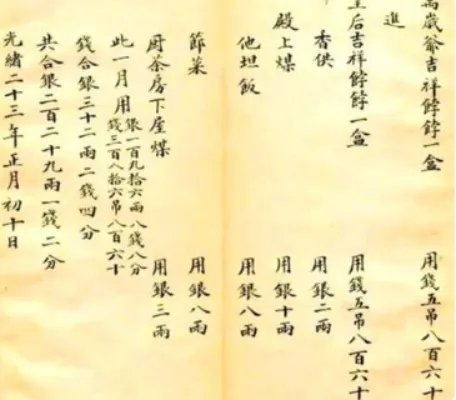 萬歲爺吉祥餑餑一盒 用錢五吊八百六十
進
皇后吉祥餑餑一盒 用錢五吊八百六十
香供 用銀二兩
殿上煤 用銀十兩
他坦飯 用銀八兩
節菜 用銀八兩
厨茶房下屋煤 用銀三兩
此一月用
銀一百九拾六兩八錢八分
錢三百八拾六吊八百六十
錢合銀三十二兩二錢四分
共合銀二百二十九兩一錢二分
光緒二十三年正月初十日